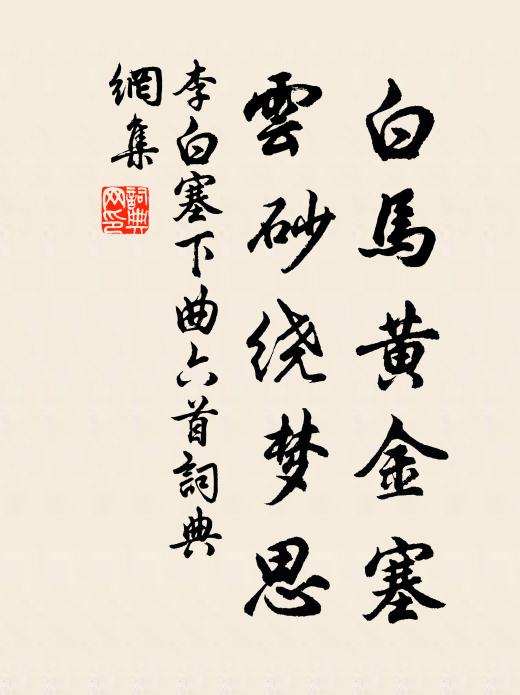 白馬黄金塞
雲砂绕梦思
李白塞下曲六首詞典
網集
詞典
网印